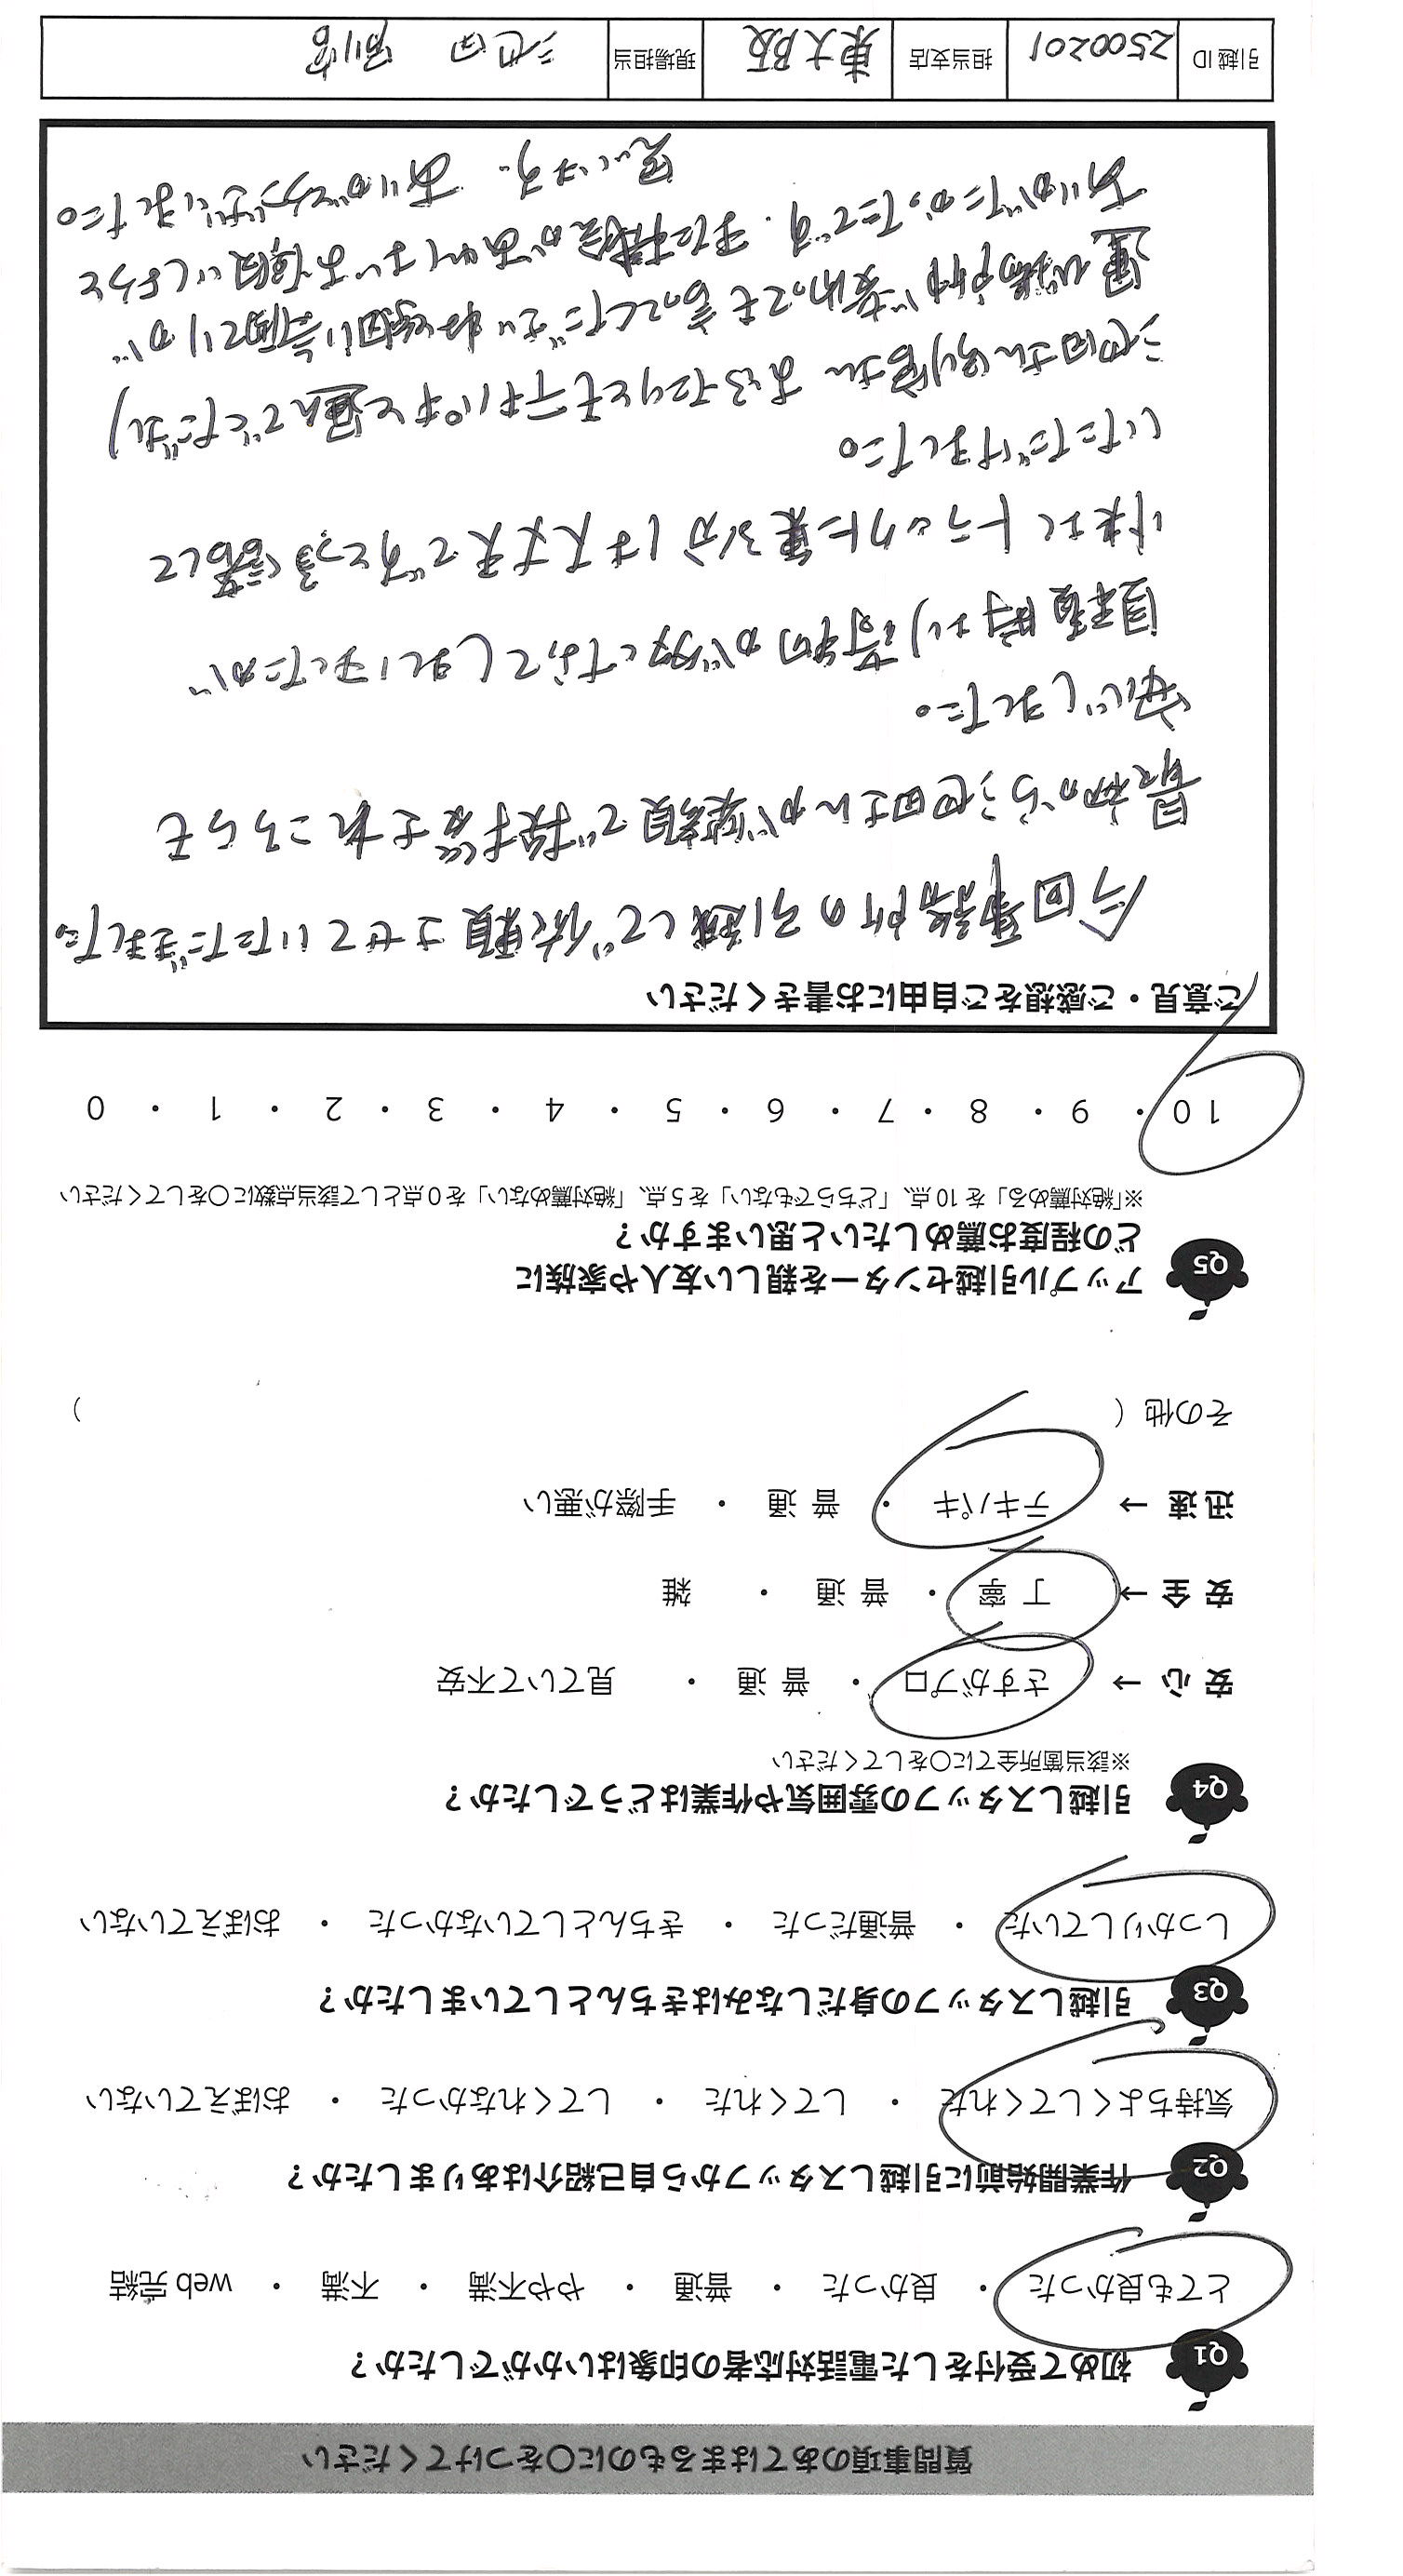 質問事項のあてはまるものに〇をつけてください
Q1 初めて受付をした電話対応者の印象はいかがでしたか？
とても良かった ・ 良かった ・ 普通 ・ やや不満 ・ 不満 ・ web 完結
Q2 作業開始前に引越しスタッフから自己紹介はありましたか？
気持ちよくしてくれた ・ してくれた ・ してくれなかった ・ おぼえていない
Q3 引越しスタッフの身だしなみはきちんとしていましたか？
しっかりしていた ・ 普通だった ・ きちんとしていなかった ・ おぼえていない
Q4 引越しスタッフの雰囲気や作業はどうでしたか？
※該当箇所全てに〇をしてください
安 心 → さすがプロ ・ 普 通 ・ 見ていて不安
安 全 → 丁 寧 ・ 普 通 ・ 雑
迅 速 → テキパキ ・ 普 通 ・ 手際が悪い
その他（ ）
Q5 アップル引越センターを親しい友人や家族に
どの程度お薦めしたいと思いますか？
※「絶対薦める」を 10 点、「どちらでもない」を 5 点、「絶対薦めない」を 0 点として該当点数に〇をしてください
10 ・ 9 ・ 8 ・ 7 ・ 6 ・ 5 ・ 4 ・ 3 ・ 2 ・ 1 ・ 0
ご意見・ご感想をご自由にお書きください
今回事務所の引越しで依頼させていただきました。
最初から池田さんが笑顔で挨拶をされこちらも
安心しました。
見積時より荷物が多くなってしまいましたが
快よくトラックに乗る分は大丈夫ですと言って
いただけました。
池田さん別宮さん おふたりともテキパキと運んでくださり
運ぶ場所が変わっても 動いてくださり
ありがたかったです。又に機会があればお願いしようと
思います。 ありがとうございました。
引越 ID 2500201 担当支店 東大阪 現場担当 池田 別宮